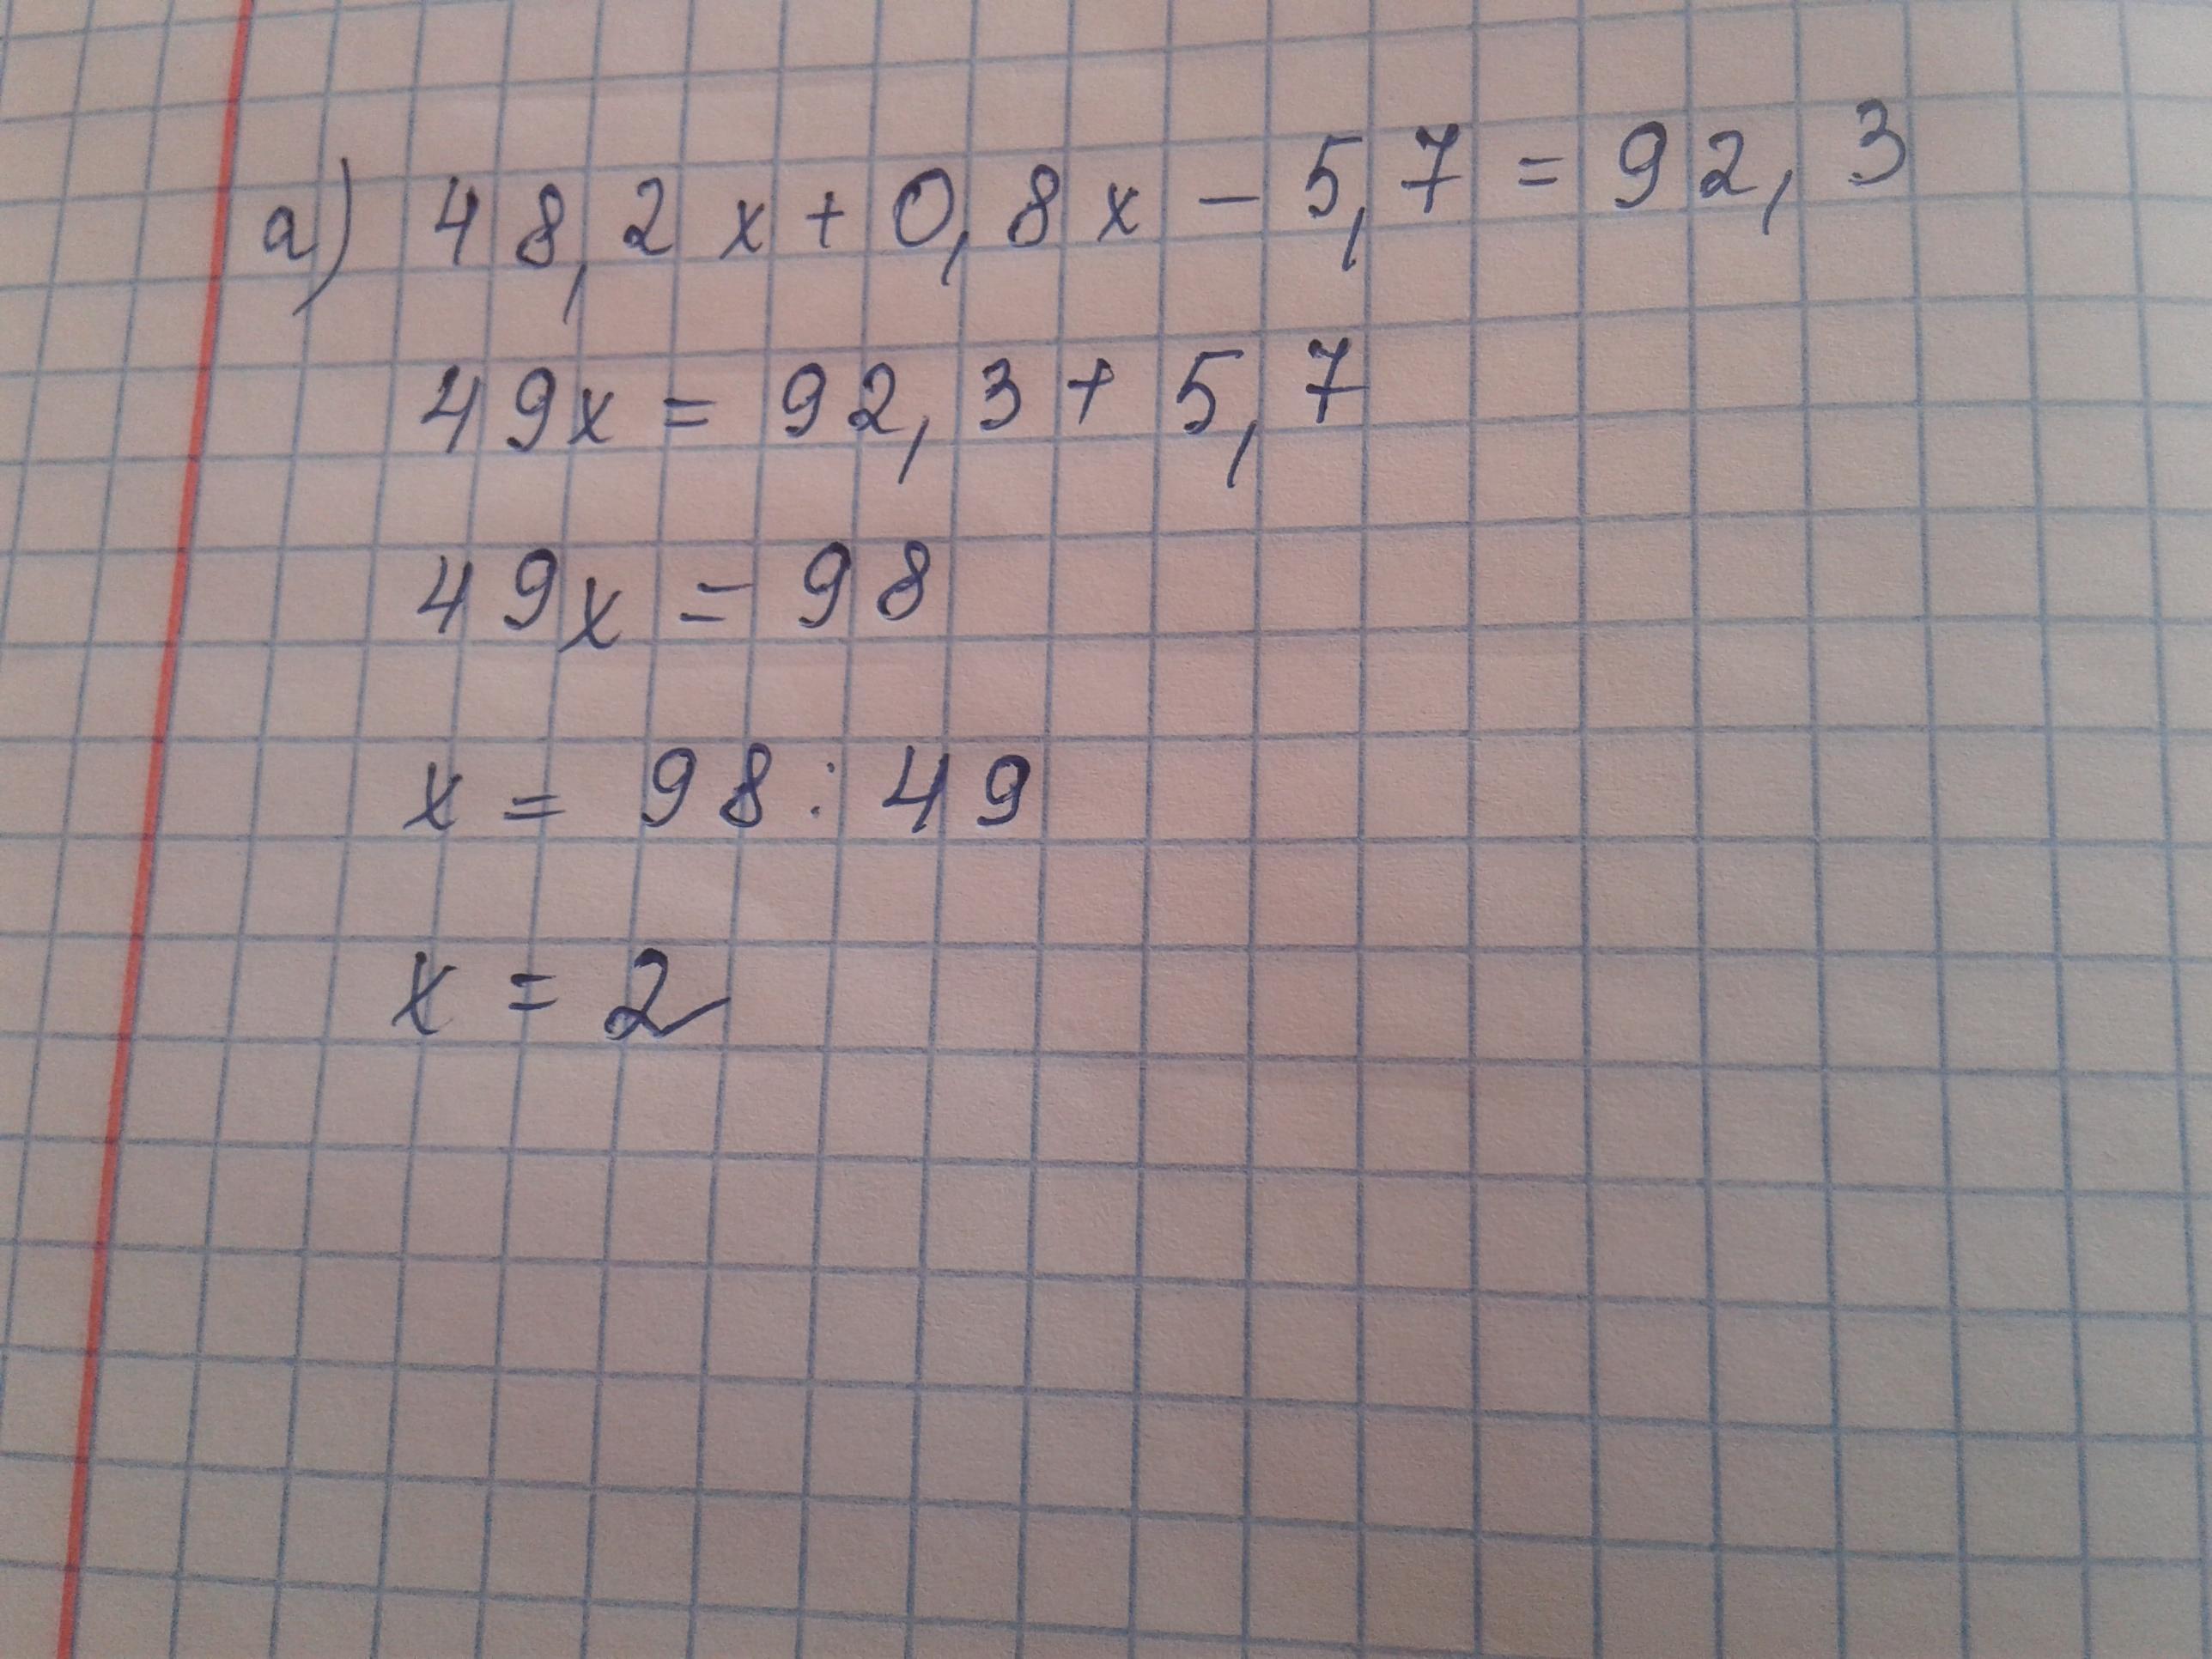 а) 48,2x + 0,8x - 5,7 = 92,3
49x = 92,3 + 5,7
49x = 98
x = 98 : 49
x = 2